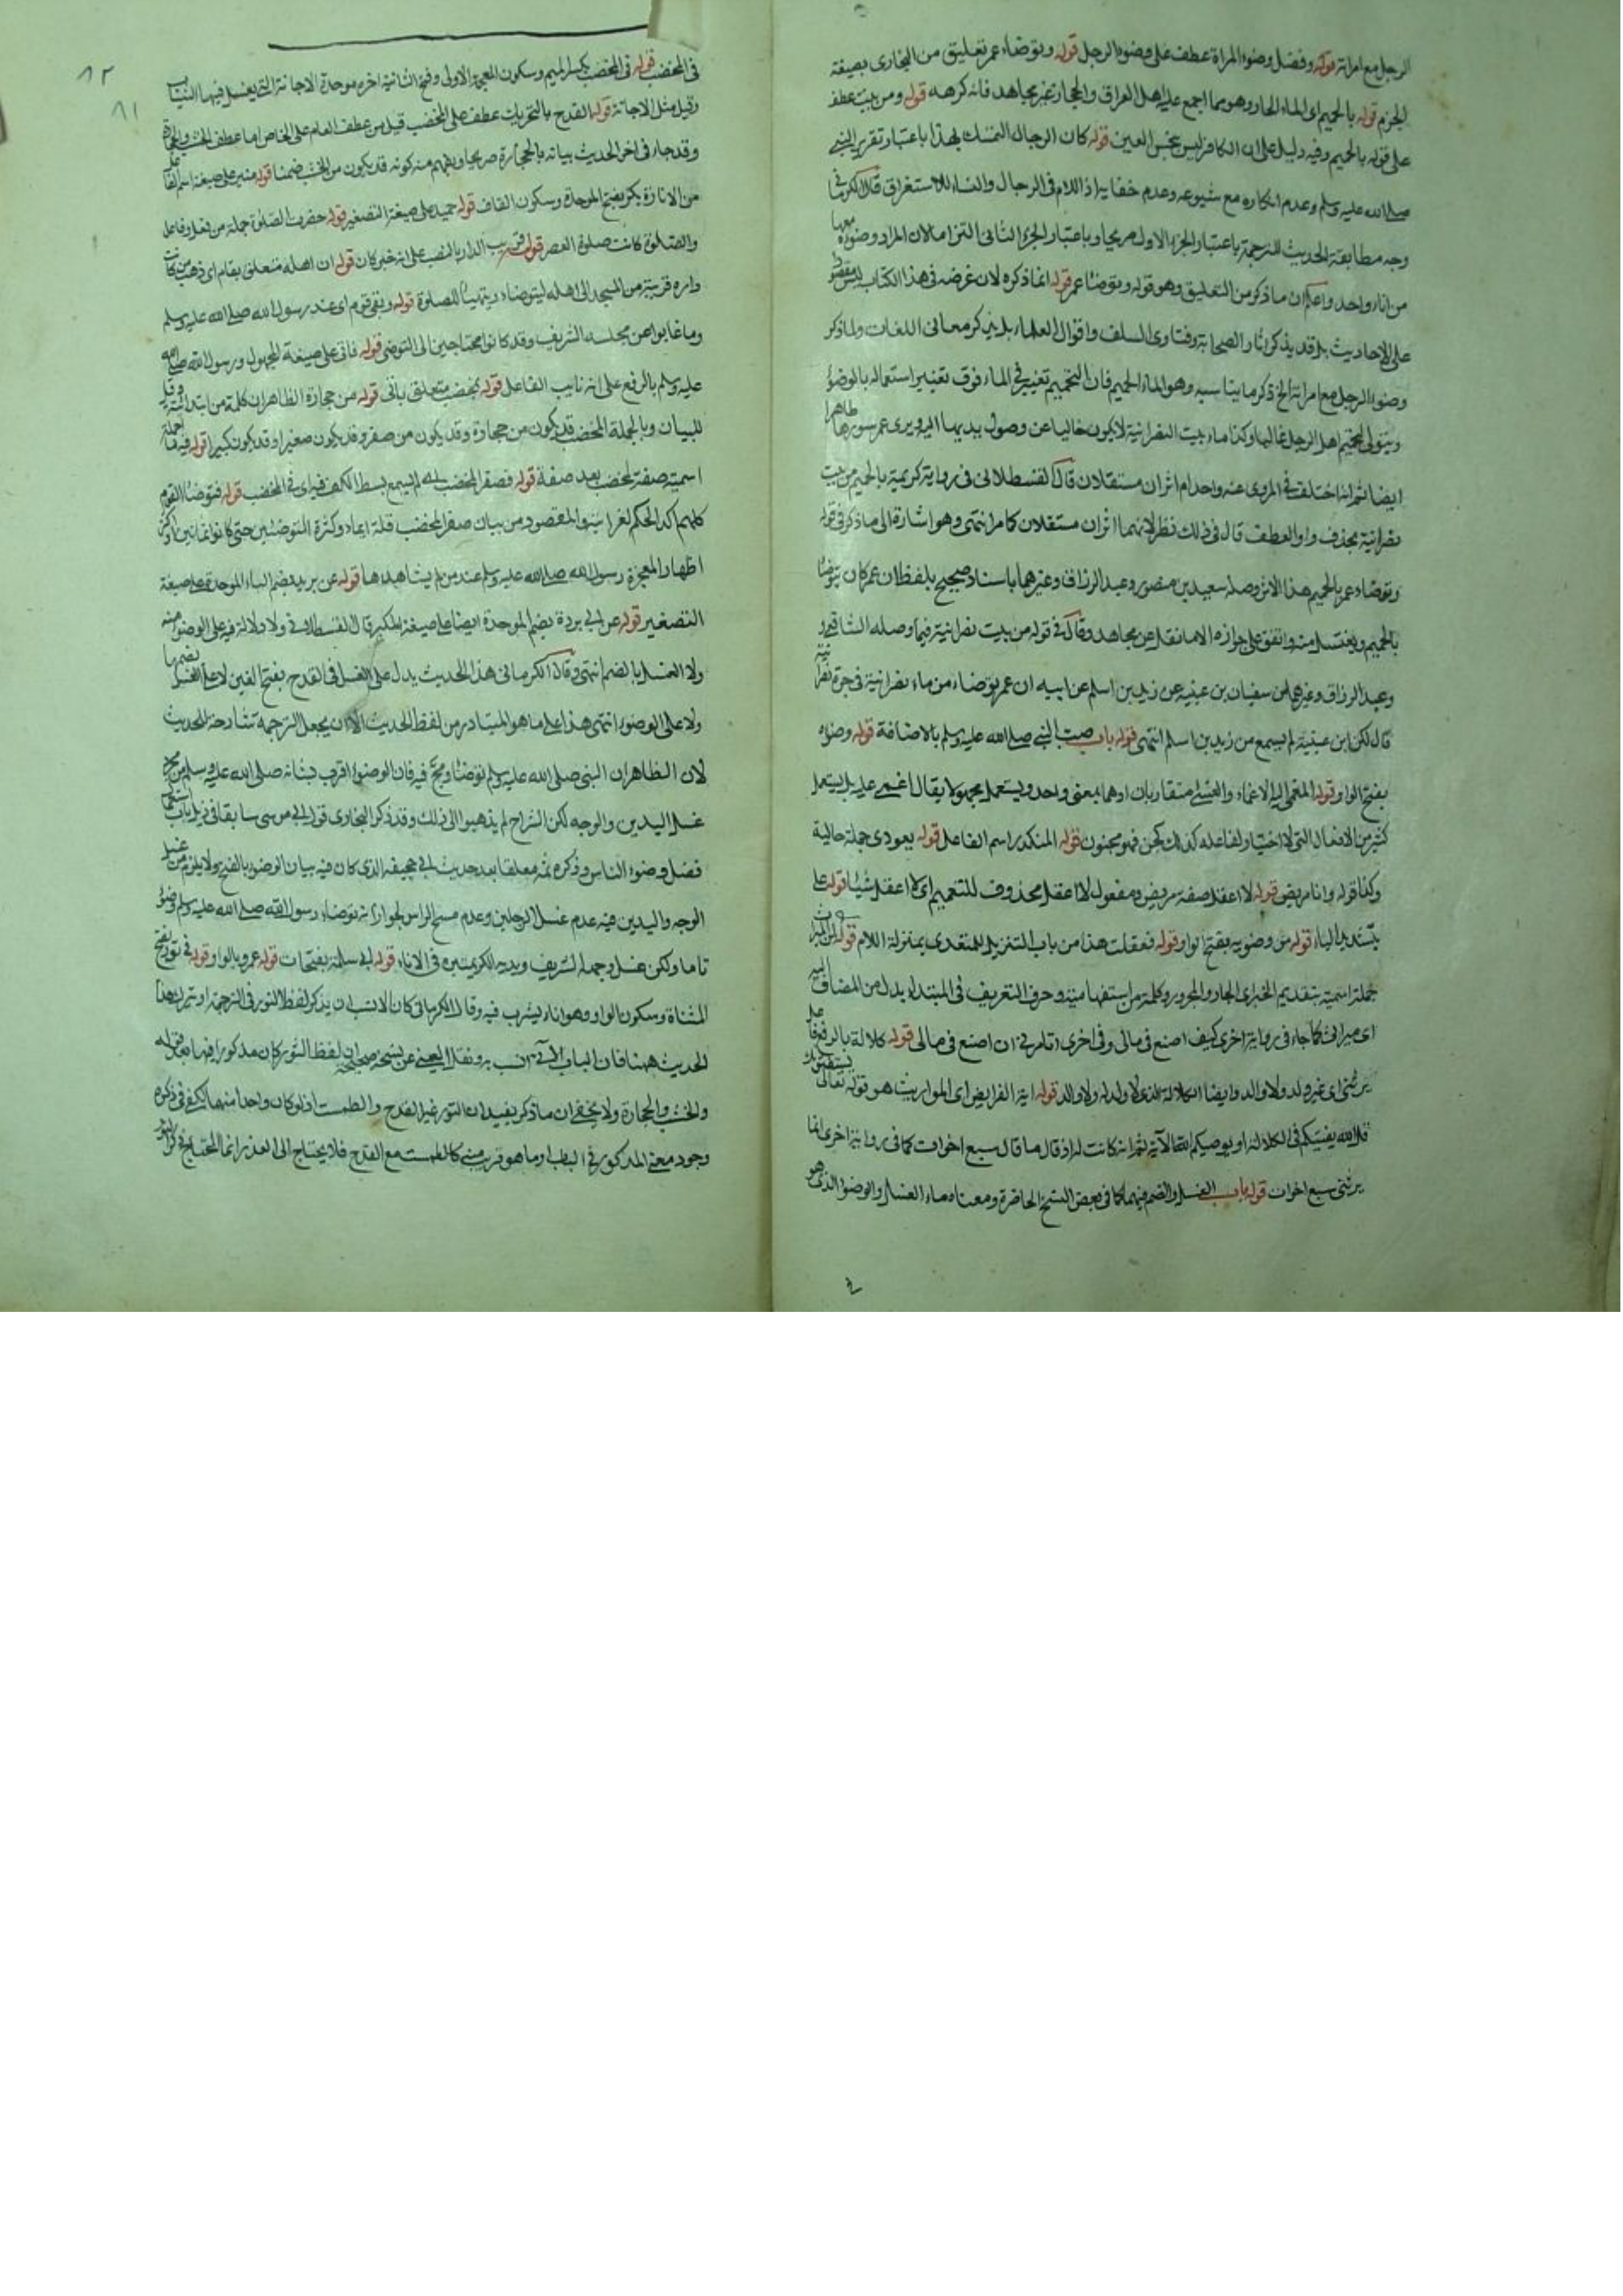 الرجل مع امراته قوله وفضل وضوء المراة عطف على وضوء الرجل قوله وتوضاء عمر تعليق من البخارى بصيغة
الجزم قوله بالحميم اى الماء الحار وهو مما اجمع عليه اهل العراق والحجاز غير مجاهد فانه كرهه قوله ومن بيت عطف
على قوله بالحميم وفيه دليل على ان الكافر ليس بنجس العين قوله كان الرجال التمسك بهذا باعتبار تقرير النبى
صلى الله عليه وسلم وعدم انكاره مع شيوعه وعدم خفايه اذ اللام فى الرجال والنساء للاستغراق قال الكرمانى
وجه مطابقة الحديث للترجمة باعتبار الجزء الاول صريحا وباعتبار الجزء الثانى التزاما لان المراد وضوءه معها
من اناء واحد واعلم ان ما ذكر من التعليق وهو قوله وتوضا عمر قوله انما ذكره لان غرضه فى هذا الكتاب ليس مقصورا
على الاحاديث بل قد يذكر اثار الصحابة وفتاوى السلف واقوال العلماء بل يذكر معانى اللغات ولما ذكر
وضوء الرجل مع امراته الخ ذكر ما يناسبه وهو الماء الحميم فان التحميم تغيير فى الماء فوق تغييرا استعماله بالوضوء
ويتولى تحميم اهل الرجل غالبا وكذا ماء بيت النصرانية لا يكون خاليا عن وصول يديها اليه ويرى عمر سورها طاهرا
ايضا ثم انه اختلف فى المروى عنه واحد ام اثران مستقلان قال القسطلانى فى رواية كريمة بالحميم من بيت
نصرانية بحذف واو العطف قال فى ذلك نظر لانهما اثران مستقلان كما مر انتهى وهو اشارة الى ما ذكر فى قوله
وتوضاء عمر بالحميم هذا الاثر وصله سعيد بن منصور وعبد الرزاق وغيرهما باسناد صحيح بلفظ ان عمر كان يتوضا
بالحميم ويغتسل منه واتفق على جوازه الا ما نقل عن مجاهد وقال فى قوله من بيت نصرانية فيما وصله الشافعى
وعبد الرزاق وغيرهما عن سفيان بن عيينه عن زيد بن اسلم عن ابيه ان عمر توضاء من ماء نصرانية فى جرة نصرانية
قال لكن ابن عيينة لم يسمع من زيد بن اسلم انتهى قوله باب صب النبى صلى الله عليه وسلم بالاضافة قوله وضوءه
بفتح الواو قوله المغمى اليه الاغماء والغشى متقاربان او هما بمعنى واحد ويستعمل مجهولا يقال اغمى عليه بل يستعمل
كثير من الافعال التى لا اختيار لفاعله كذلك كجن فهو مجنون قوله المنكدر اسم الفاعل قوله يعودى جملة حالية
وكذا قوله وانا مريض قوله لا اعقل صفة مريض ومفعول لا اعقل محذوف للتعميم اى لا اعقل شيئا قوله على
بتشديد الياء قوله من وضوئه بفتح الواو قوله فعقلت هذا من باب التنزيل للمتعدى بمنزلة اللام قوله لمن الميراث
جملة اسمية بتقديم الخبر اى الجار والمجرور وكلمة من استفهامية وحرف التعريف فى المبتدا بدل من المضاف اليه
اى ميراثى كما جاء فى رواية اخرى كيف اصنع فى مالى وفى اخرى ما تامرنى ان اصنع فى مالى قوله كلالة بالرفع فاعل
يرثنى اى غير ولد ولا والد وايضا الكلالة الذى لا ولد له ولا والد قوله اية الفرايض اى المواريث هو قوله تعالى يستفتونك
قل الله يفتيكم فى الكلالة او يوصيكم الله الآية ثم انه كانت له اذ قال ما قال سبع اخوات كما فى رواية اخرى انما
يرثنى سبع اخوات قوله باب الغسل والضم فيهما كما فى بعض النسخ الحاضرة ومعناه ماء الغسل والوضوء الذى هو
٨٢
٨١
فى المخضب قوله فى المخضب بكسر الميم وسكون المعجمة الاولى وفتح الثانية اخره موحدة الاجانة التى يغسل فيها الثياب
وقيل مثل الاجانة قوله القدح بالتحريك عطف على المخضب قيل من عطف العام على الخاص اما عطف الخشب والحجارة
وقد جاء فى اخر الحديث بيانه بالحجارة صريحا ويفهم منه كونه قد يكون من الخشب ضمنا قوله منير على صيغة اسم الفاعل
من الانارة بكر بفتح الموحدة وسكون القاف قوله حميد على صيغة التصغير قوله حضرت الصلوة جملة من فعل وفاعل
والصلوة كانت صلوة العصر قوله قريب الدار بالنصب على انه خبر كان قوله ان اهله متعلق بقام اى ذهب من كانت
داره قريبة من المسجد الى اهله ليتوضاء ويتهيأ للصلوة قوله وبقى قوم اى عند رسول الله صلى الله عليه وسلم
وما غابوا عن مجلسه الشريف وقد كانوا محتاجين الى التوضى قوله فاتى على صيغة المجهول ورسول الله صلى الله
عليه وسلم بالرفع على انه نايب الفاعل قوله بمخضب متعلق باتى قوله من حجارة الظاهر ان كلمة من ابتدائية وقيل
للبيان وبالجملة المخضب قد يكون من حجارة وقد يكون من صفر وقد يكون صغيرا وقد يكون كبيرا قوله فيه ماء جملة
اسمية صفة لمخضب بعد صفة قوله فصغر المخضب اى لم يسع بسط الكف فيه اى فى المخضب قوله فتوضا القوم
كلهم اكد الحكم لغرابته والمقصود من بيان صغر المخضب قلة الماء وكثرة المتوضئين حتى كانوا ثمانين واكثر
اظهار المعجزة رسول الله صلى الله عليه وسلم عند من لم يشاهدها قوله عن بريد بضم الباء الموحدة على صيغة
التصغير قوله عن ابى بردة بضم الموحدة ايضا على صيغة المكبر قال القسطلانى ولا دلالة فيه على الوضوء منه
ولا الغسل بالضم انتهى وقال الكرمانى هذا الحديث يدل على الغسل فى القدح بفتح الغين لا على الغسل بضمها
ولا على الوضوء انتهى هذا على ما هو المتبادر من لفظ الحديث الا ان يجعل الترجمة شارحة للحديث
لان الظاهر ان النبى صلى الله عليه وسلم توضا ومج فيه فان الوضوء اقرب بشانه صلى الله عليه وسلم من مجرد
غسل اليدين والوجه لكن الشراح لم يذهبوا الى ذلك وقد ذكر البخارى قول ابى موسى سابقا فى ذيل باب استعمال
فضل وضوء الناس وذكره ثمه معلقا بعد حديث ابى جحيفة الذى كان فيه بيان الوضوء بالفتح ولا يلزم من غسل
الوجه واليدين فيه عدم غسل الرجلين وعدم مسح الراس لجواز انه توضاء رسول الله صلى الله عليه وسلم وضوء
تاما ولكن غسل وجهه الشريف ويديه الكريمتين فى الاناء قوله ابى سلمة بفتحات قوله عمرو بالواو قوله فى تور بفتح
المثناة وسكون الواو وهو اناء يشرب فيه وقال الكرمانى كان الانسب ان يذكر لفظ التور فى الترجمة او يترك هذا
الحديث ههنا فان الباب الاتى انسب به ونقل العينى عن نسخة صحيحة ان لفظ التور كان مذكورا فيها بعد قوله
والخشب والحجارة ولا يخفى ان ما ذكر يفيد ان التور غير القدح والطست اذ لو كان واحدا منهما لكفى فى ذكره
وجود معنى المذكور فى الباب او ما هو قريب منه كالطست مع القدح فلا يحتاج الى العذر انما المحتاج ذكر التور